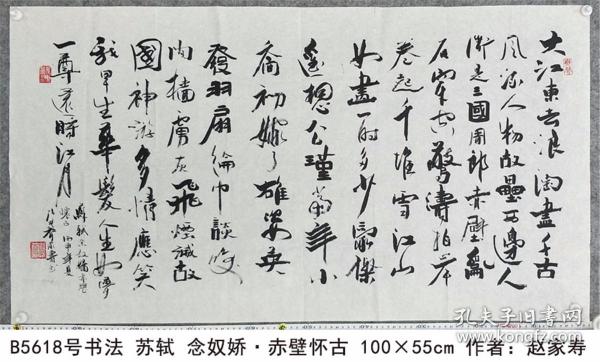 大江東去浪淘盡千古
風流人物故壘西邊人
道是三國周郎赤壁亂
石穿空驚濤拍岸
卷起千堆雪江山
如畫一時多少豪傑
遥想公瑾當年小
喬初嫁了雄姿英
發羽扇綸巾談笑
間檣虜灰飛煙滅故
國神遊多情應笑
我早生華髮人生如夢
一尊還酹江月
蘇軾念奴嬌赤壁
懷古
B5618号书法 苏轼 念奴娇·赤壁怀古 100×55cm 作者：赵家寿
孔夫子旧书网